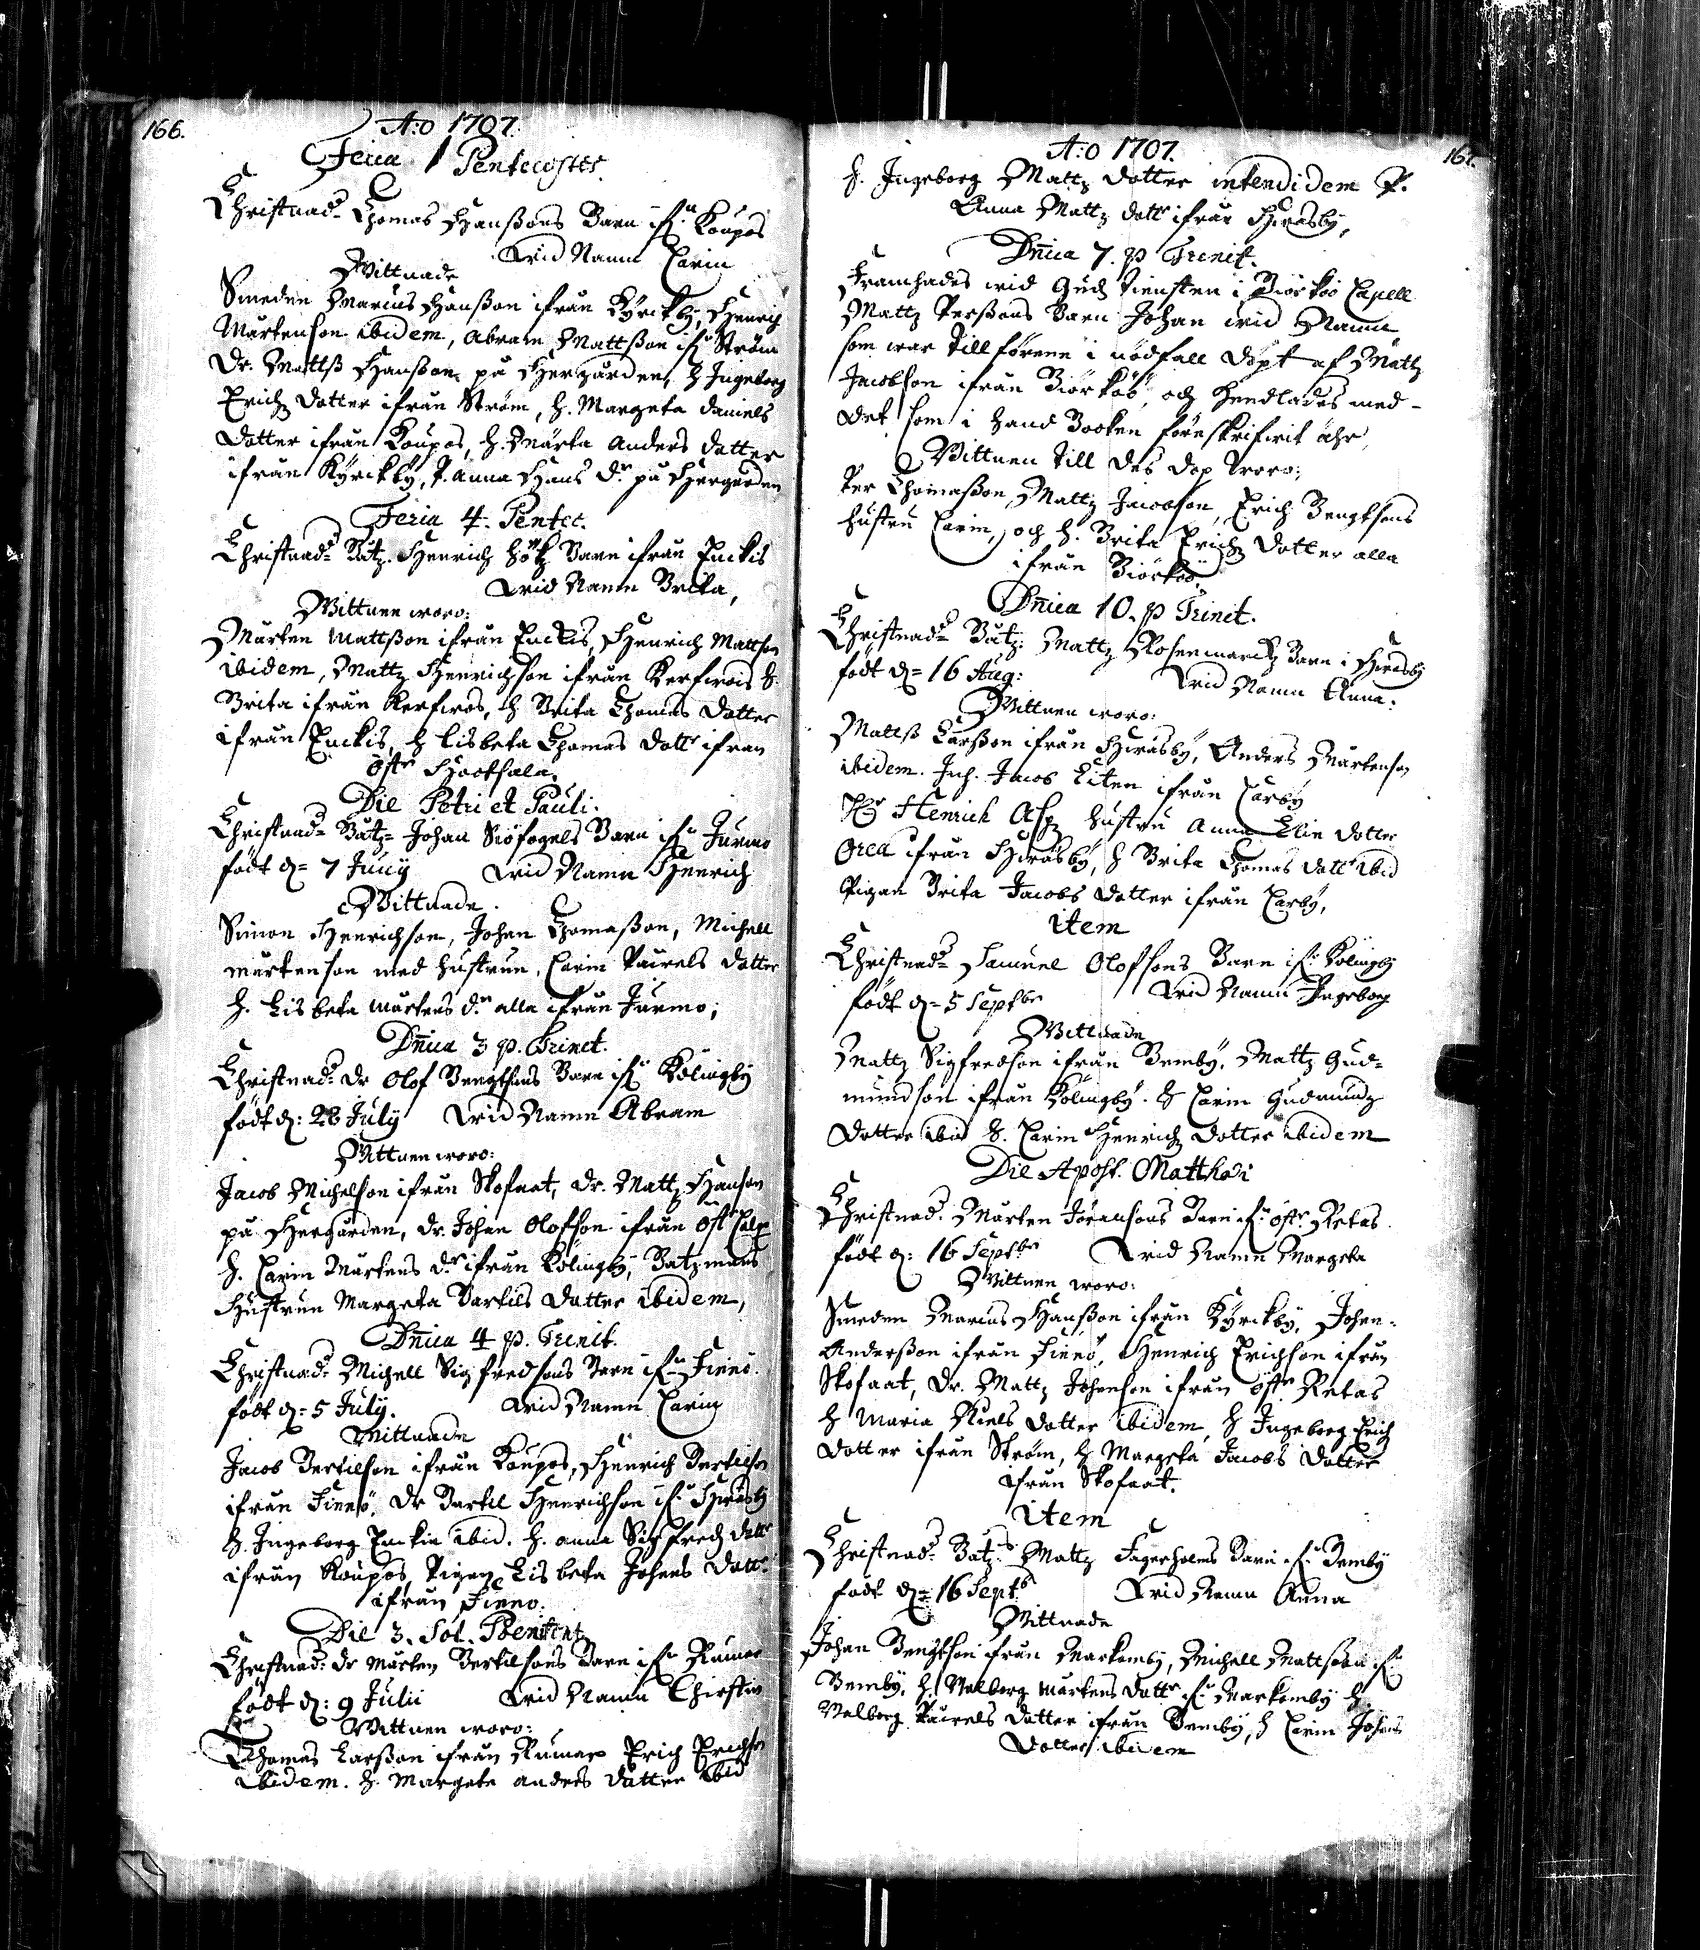 166.
A:o 1707.
Feria 1 Pentecostes.
Christnad= Thomas Hanßons Barn ifn Koupos
wid Namn Carin
Wittnade
Smeden Marcus Hanßon ifrån Kyrckby, Henrich
Mårtenson ibidem, Abram Mattßon ifn Ström
Dr. Mattß Hanßon på Hergården, H Ingeborg
Erichz dotter ifrån Ström, H. Margeta Daniels
dotter ifrån Koupos, H. Märta Anders dotter
ifrån Kyrckby, P. Anna Hans dr på Hergården
Feria 4. Pentec.
Christnad= Båtz. Henrich Barn ifrån Enckis
wid Namn Brita,
Wittnen woro:
Mårten Mattßon ifrån Enckis, Henrich Mattson
ibidem, Mattz Henrichson ifrån Kerfwois H.
Brita ifrån Kerfwos, H Brita Thomas dotter
ifrån Enckis, H Lisbeta Thomas dottr ifrån
östr Hootsala.
Die Petri et Pauli.
Christnad= Båtz= Johan Siöfogels Barn ifn Jurmo
född d= 7 Junij wid Namn Henrich
Wittnade.
Simon Henrichson, Johan Thomaßon, Michell
Mårtenson med hustrun, Carin Påwels dotter
H. Lisbeta Mårtens dr alla ifrån Jurmo;
Dnica 3 p. Trinit.
Christnad= Dr Olof Bengtsons Barn ifn Kölingby
född d: 28 July wid Namn Abram
Wittnen woro:
Jacob Michelson ifrån Skofaat, Dr. Mattz Hanson
på Hergården, Dr. Johan Olofson ifrån östr
H. Carin Mårtens dr ifrån Kölingby, Båtzmans
Hustrun Margeta Bartils dotter ibidem,
Dnica 4 p. Trinit.
Christnad= Michell Sigfredsons Barn ifn Finnö.
född d= 5 July. wid Namn Carin
Wittnade
Jacob Bertilson ifrån Koupos, Henrich Bertilson
ifrån Finnö, Dr Bartil Henrichson ifn Hwäsby
H. Ingeborg ibid. H. Anna Sigfredz dottr
ifrån Koupos, Pigan Lisbeta Johans dottr
ifrån Finnö.
Die 3. Sol. Poenitent.
Christnad= Dr Mårten Bertilsons Barn ifn Rumar
född d: 9 Julii wid Namn Chirstin
Wittnen woro:
Thomas Larßon ifrån Rumar Erich Erichson
ibidem. H. Margeta Anders dotter ibid
167.
A:o 1707.
H. Ingeborg Mattz dotter intendidem P.
Anna Mattz dottr ifrån Hwäsby,
Dnica 7. p Trinit.
Framhades wid Gudz tiensten i Biörkö Capell
Mattz Perßons Barn Johan wid Namn
som war tillförene i nödfall döpt af Mattz
Jacobson ifrån Biörkö, och handlades med-
det som i Hand Booken föreskrifwit ähr,
Wittnen till des dop woro:
Per Thomaßon, Mattz Jacobson, Erich Bengtsons
hustru Carin, och H. Brita Erichz dotter alla
ifrån Biörkö.
Dnica 10. p Trinit.
Christnad= Båtz: Mattz Rosenmarckz Barn i Hwäsby
född d= 16 Aug: wid Namn Anna.
Wittnen woro:
Mattß Larßon ifrån Hwäsby, Anders Mårtenson
ibidem. Inh. Jacob Liten ifrån Carby
Henrich Aspz hustru Anna Elin dotter
ifrån Hwäsby, H Brita Thomas dottr ibid
Pigan Brita Jacobs dotter ifrån Carby,
item
Christnad= Samuel Olofsons Barn ifn Kölingby
född d= 5 Septbr wid Namn Ingeborg
Wittnade
Mattz Sigfredson ifrån Bemby, Mattz Gud-
mundson ifrån Kölingby. H Carin Gudmundz
dotter ibid H. Carin Henrichz dotter ibidem
Die Apost. Matthæi
Christnad. Mårten Jöransons Barn ifn östr Retas
född d: 16 Septbr wid Namn Margeta
Wittnen woro:
Smeden Marcus Hanßon ifrån Kyrckby, Johan-
Anderßon ifrån Finnö, Henrich Erichson ifrån
Skofaat, Dr. Mattz Johanson ifrån östr Retas
H Maria Niels dotter ibidem, H Ingeborg Erich
dotter ifrån Ström, H Margeta Jacobs dotter
ifrån Skofaat.
item
Christnad= Båtz= Mattz Fagerholms Barn ifn Bemby
född d= 16 Septb wid Namn Anna
Wittnade
Johan Bengtson ifrån Markomby, Michell Mattßon ifn
Bemby, H. Walborg Mårtens dottr ifn Markomby H.
Walborg Påwels dotter ifrån Bemby, H Carin Johans
dotter ibidem